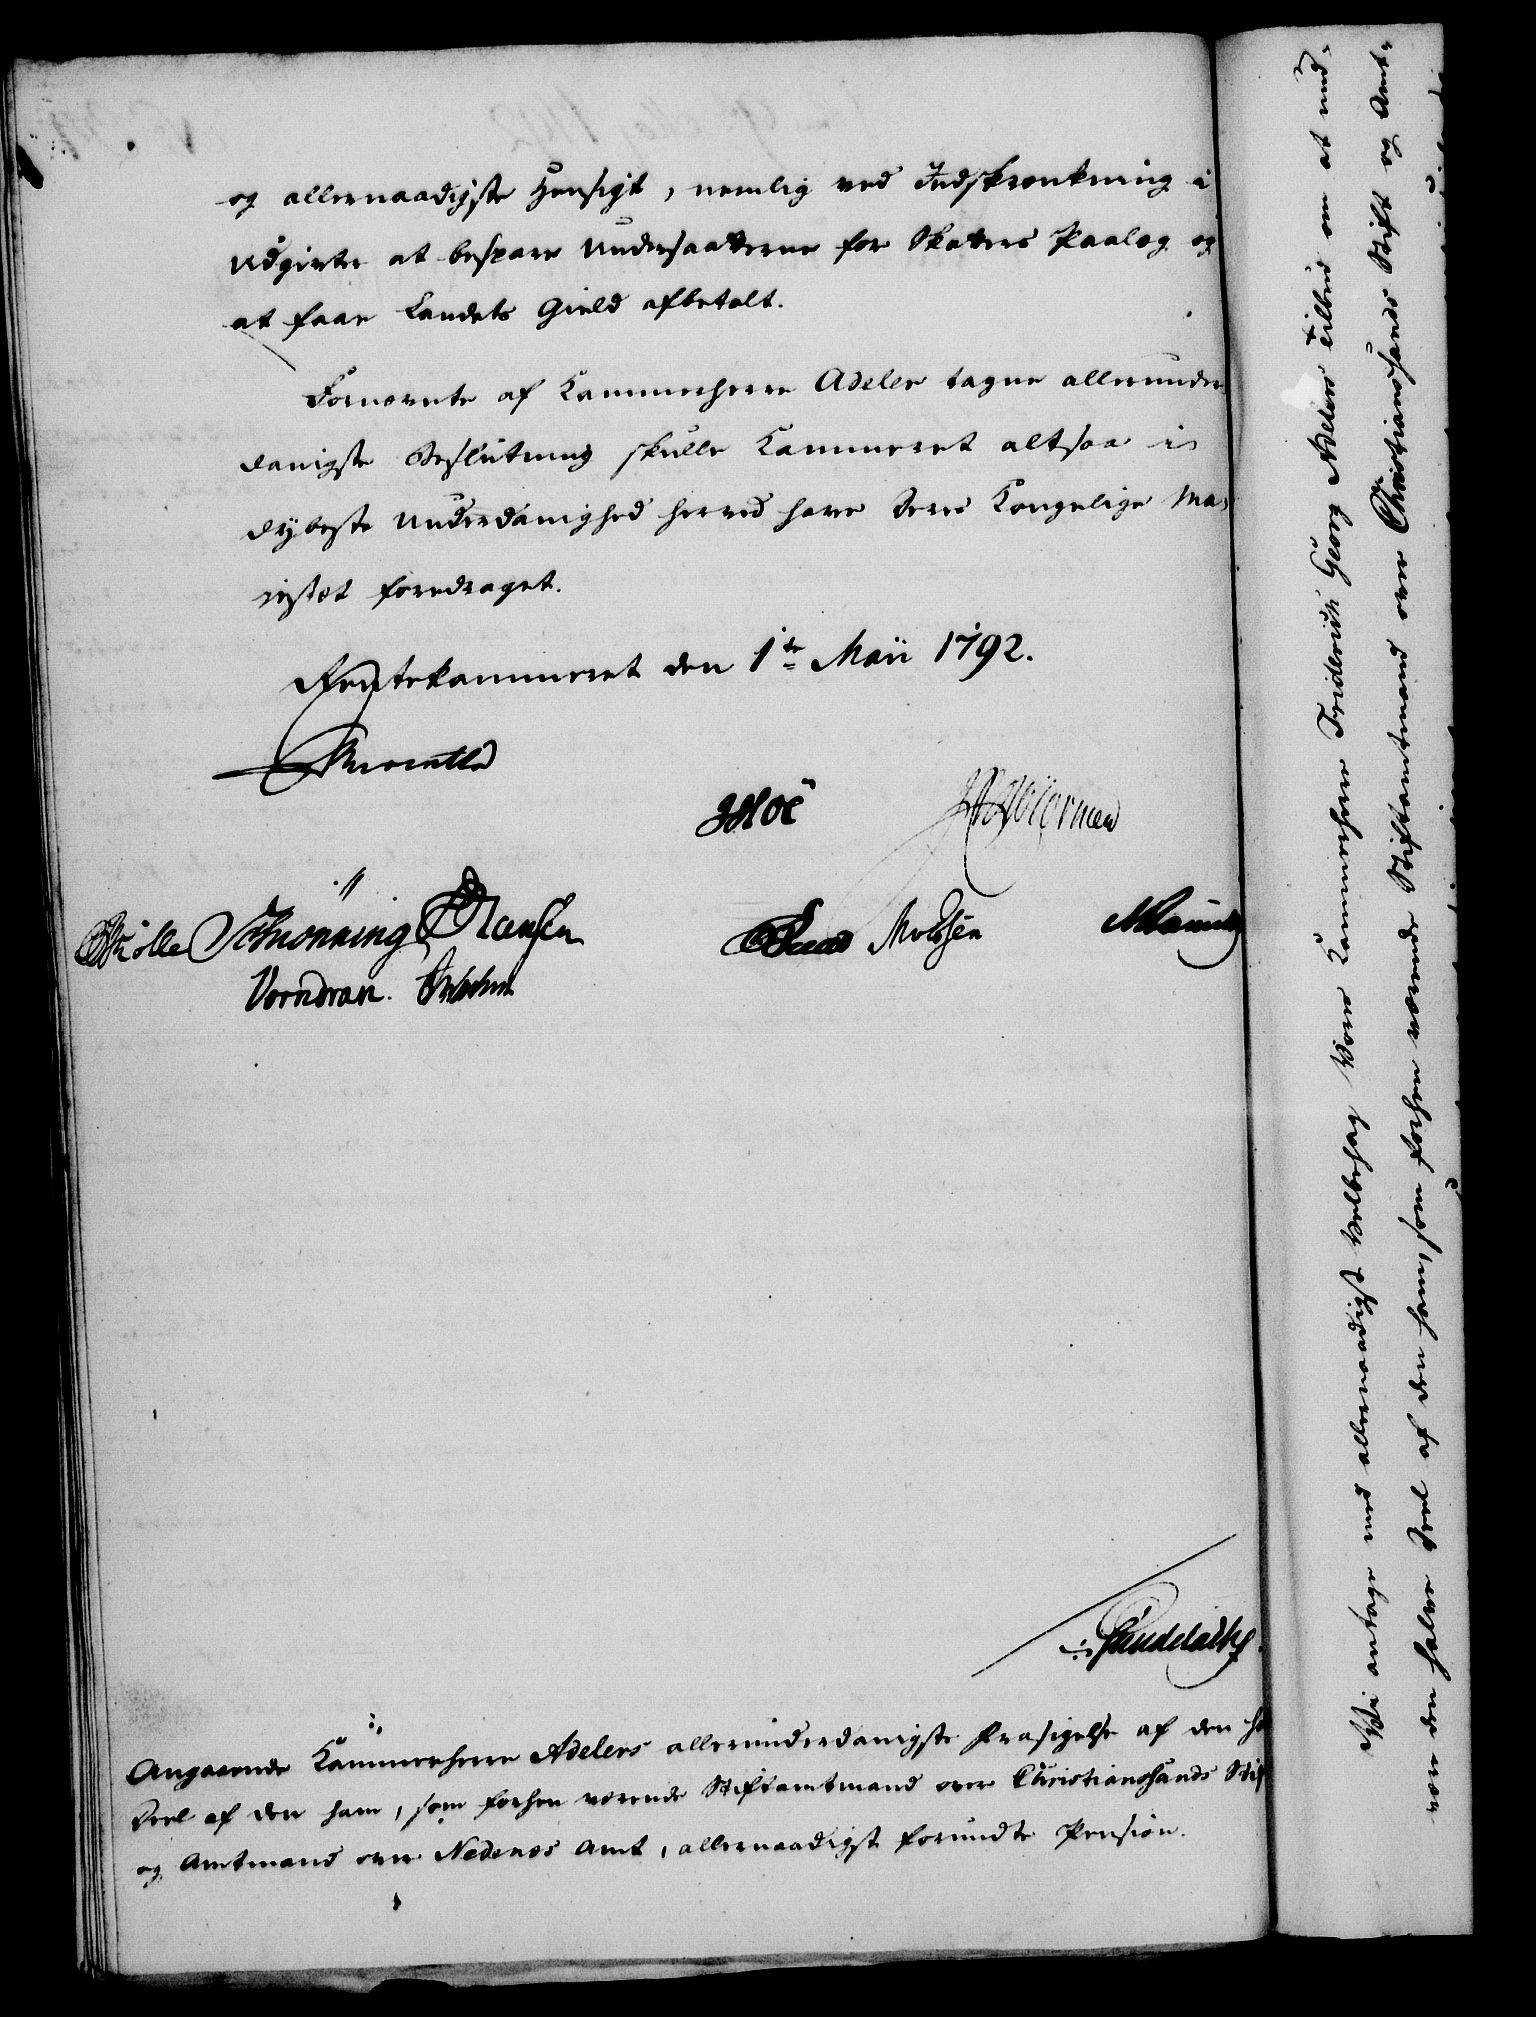 og allernaadigste Hensigt, nemlig ved Indskrænkning i
Udgivter at bespare Undersaatterne for Skatters Paalæg og
at faae Landets Gield afbetalt.
Fornævnte af Kammerherre Adeler tagne allerunder
danigste Beslutning skulle Kammeret altsaa i
dybeste Underdanighed herved have Deres Kongelige Ma-
jestæt foredraget.
Rentekammeret den 1te Maii 1792.
Hoë
Schiønning Hansen
Vorndran.
Angaaende Kammerherre Adelers allerunderdanigste Frasigelse af den
Deel af den ham, som forhen værende Stiftamtmand over Christiansands Stif
og Amtmand over Nedenæs Amt, allernaadigst forundte Pension.
Vi antage med allernaadigst Velbehag Vores Kammerherre Friderich Georg Adelers Tilbud om at und-
være den halve Deel af den ham, som forhen værende Stiftamtmand over Christiansands Stift og Amt-